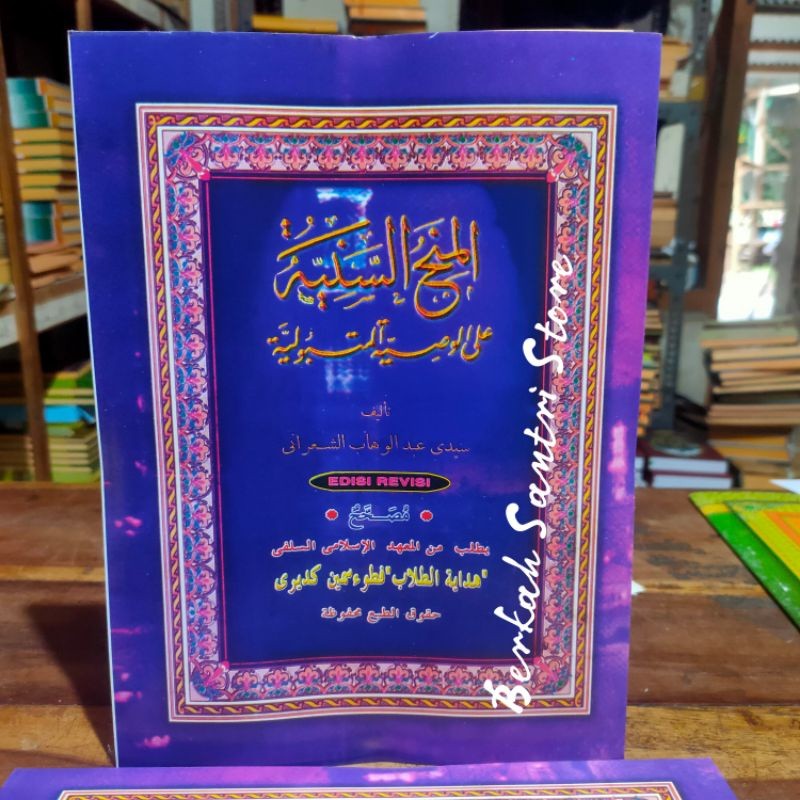 المنح السَّنِيَّة
على الوصية المتبولية
تأليف
سيدى عبد الوهاب الشعرانى
EDISI REVISI
مُصَحَّحٌ
يطلب من المعهد الإسلامى السلفى
"هداية الطلاب" فطوء سمين كديرى
حقوق الطبع محفوظة
Berkah Santri Store